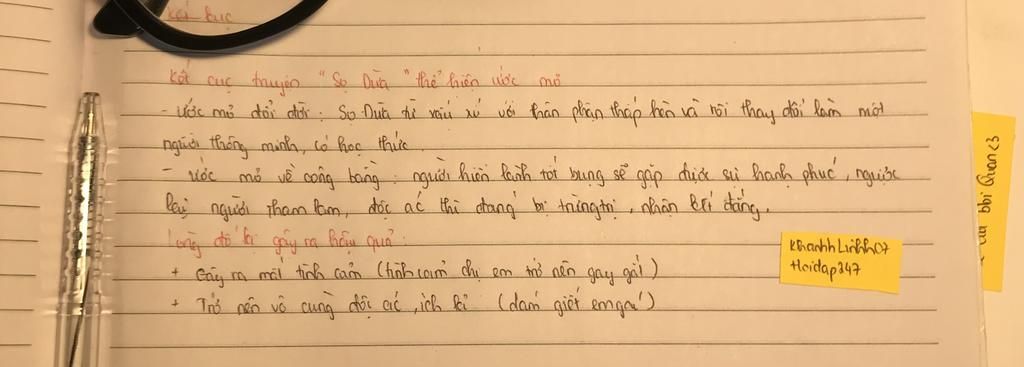 Kết cục
Kết cục truyện "Sọ Dừa" thể hiện ước mơ
- Ước mơ đổi đời: Sọ Dừa từ xấu xí với thân phận thấp hèn và rồi thay đổi làm một
người thông minh, có học thức.
- Ước mơ về công bằng: người hiền lành tốt bụng sẽ gặp được sự hạnh phúc, ngược
lại người tham lam, độc ác thì đáng bị trừng trị, nhận đắng.
Lòng đố kị gây ra hậu quả:
+ Gây ra mất tình cảm (tình cảm chị em trở nên gay gắt)
+ Trở nên vô cùng độc ác, ích kỉ (dám giết em gái)
KhanhLinhh07
Hoidap247
bbi Quan<3